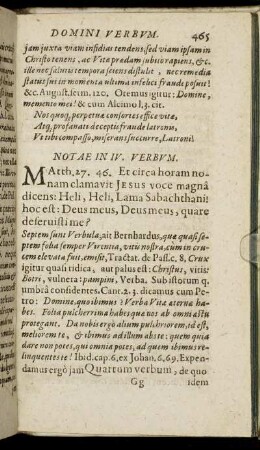 DOMINI VERBVM. 465
jam juxta viam insidias tendens, sed viam ipsam in
Christo tenens, ac Vitæ prædam subito rapiens, &c.
ille nec salutis tempora scienς distulit, nec remedia
status sui in momenta ultima infelici fraude posuit!
&c. August. serm. 120. Oremus igitur: Domine,
memento mei! & cum Alcimo l.3. cit.
Nos quoq́, perpetuæ consortes effice vitæ,
Atq́, profanati deceptis fraude latronis,
Vt tibi compasso, miserans succurre, Latroni!
NOTAE IN IV. VERBVM.
MAtth. 27. 46. Et circa horam no-
nam clamavit JESUS voce magnâ
dicens: Heli, Heli, Lama Sabachthani!
hoc est: Deus meus, Deus meus, quare
deseruisti me?
Septem sunt Verbula, ait Bernhardus, quæ quasi se-
ptem folia semper Virentia, vitis nostra, cum in cru-
cem elevata fuit, emisit, Tractat. de Pass. c. 8. Crux
igitur quasi ridica, aut palus est: Christus, vitis:
Botri, vulnera: pampini, Verba. Sub istorum q.
umbrâ considentes. Cant. 2. 3. dicamus cum Pe-
tro: Domine, quo ibimus? Verba Vitæ æternæ ha-
bes. Folia pulcherrima habes quæ nos ab omni æstu
protegant. Da nobis ergò alium pulchriorem, id est,
meliorem te, & ibimus ad illum abs te: quem quia
dare non potes, qui omnia potes, ad quem ibimus re-
linquentes te? Ibid. cap. 6, ex Johan. 6. 69. Expen-
damus ergò jam Quartum verbum, de quo
Gg idem